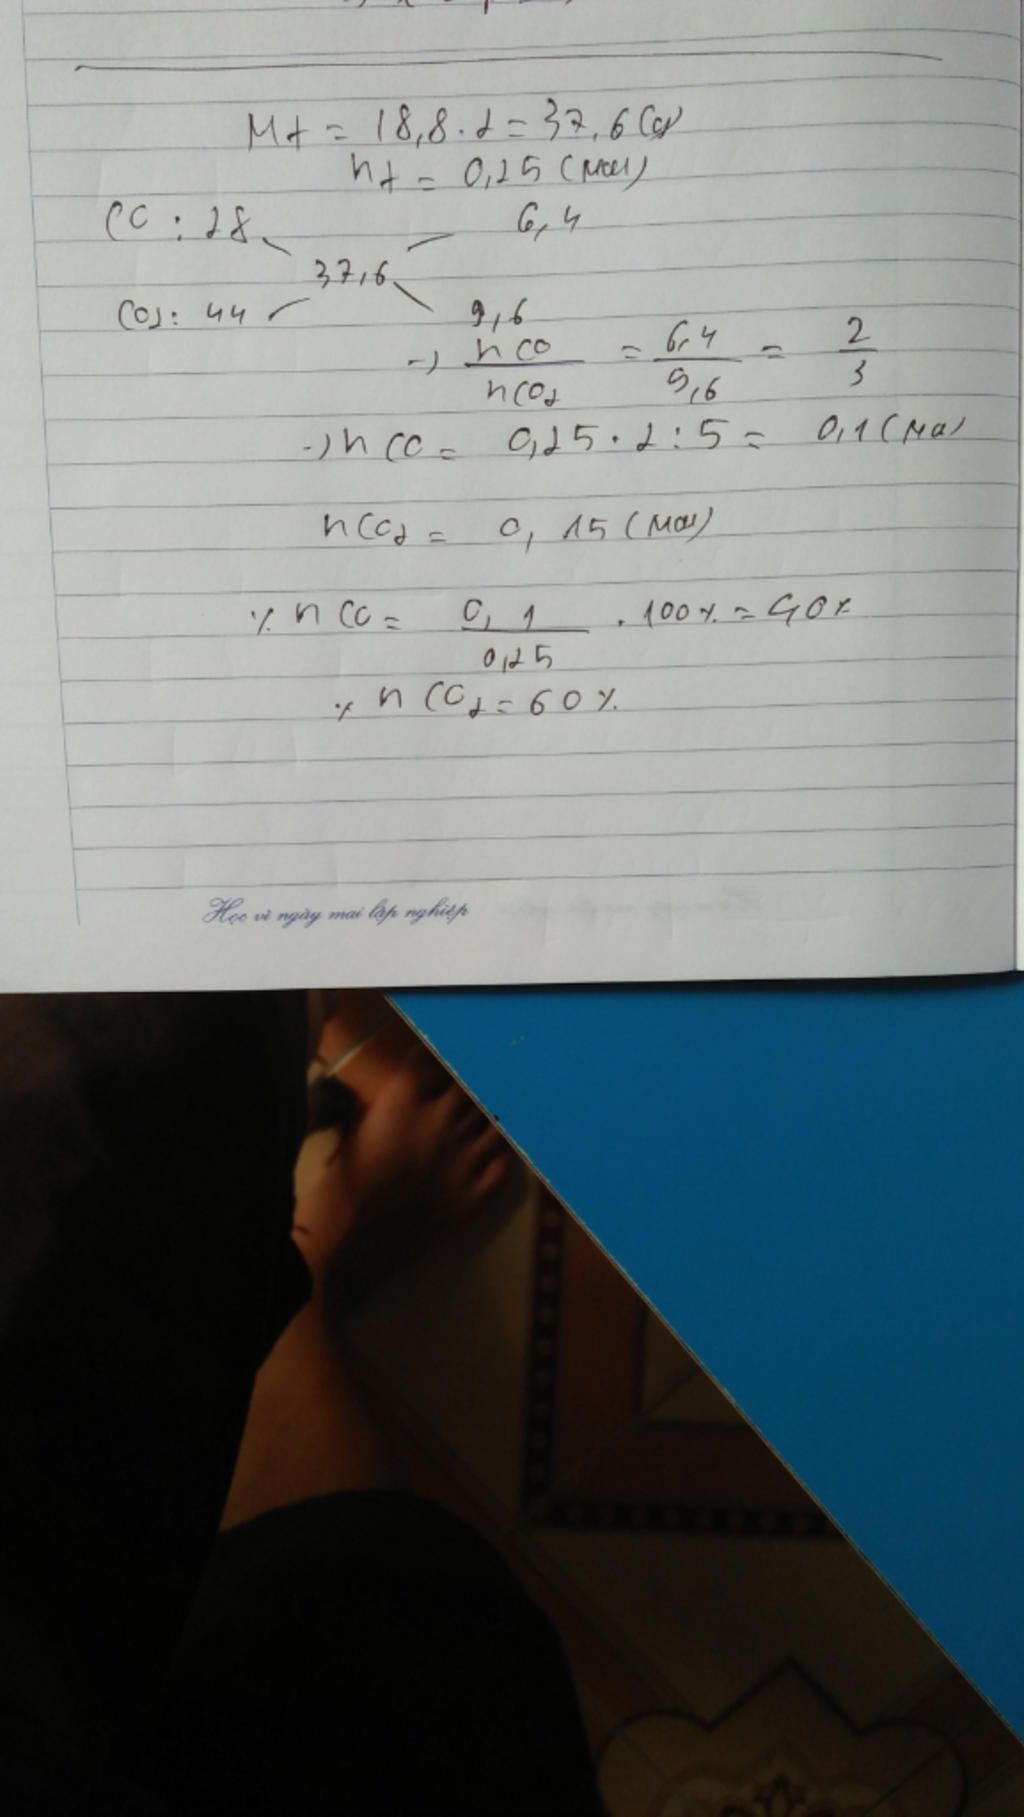 Mt = 18,8.2 = 37,6 (g)
nt = 0,25 (mol)
CO : 28 6,4
37,6
CO2: 44 9,6
-) nCO / nCO2 = 6,4 / 9,6 = 2 / 3
-) nCO = 0,25 . 2 : 5 = 0,1 (mol
nCO2 = 0, 15 (mol)
% nCO = 0, 1 / 0,25 . 100% = 40%
% nCO2 = 60%
Học vì ngày mai lập nghiệp